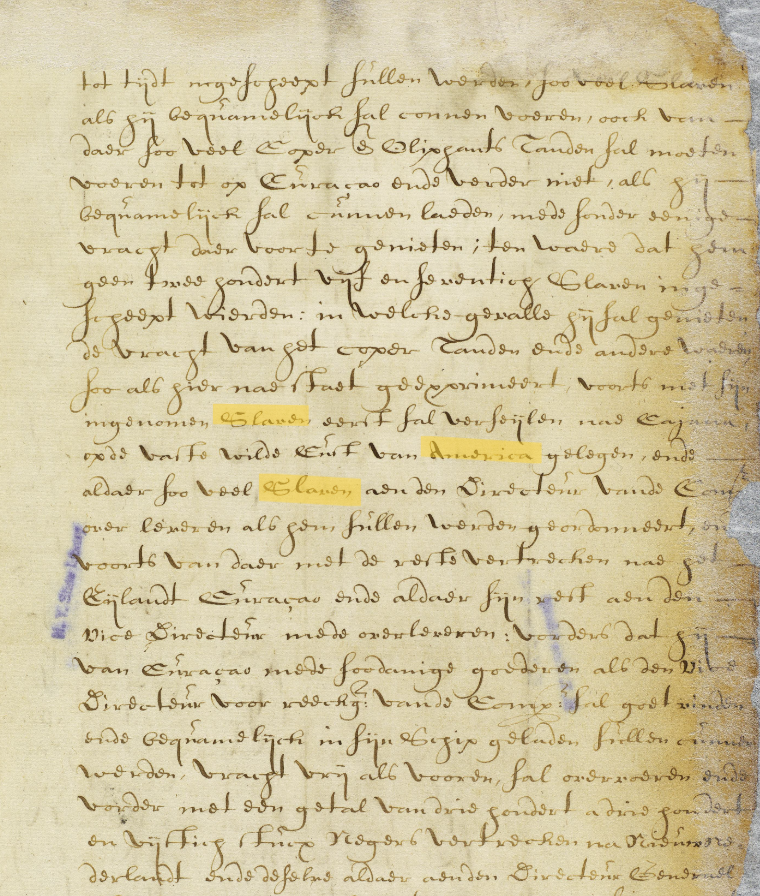 tot tijdt ingescheept sullen werden, soo veel Slaven
als hij bequamelijck sal connen voeren, oock van
daer soo veel Coper & Oliphants Tanden sal moeten
voeren tot op Curaçao ende verder niet, als hij
bequamelijck sal cunnen laeden, mede sonder eenige
vracht daer voor te genieten; ten waere dat hem
geen twee hondert vijf en seventich Slaven inge-
scheept wierden: in welcke gevalle hij sal genieten
de vracht van het coper Tanden ende andere waeren
soo als hier nae staet geexprimeert, voorts met sijn
ingenomen Slaven eerst sal verseijlen nae
opde vaste wilde Cust van America gelegen, ende
aldaer soo veel Slaven aenden Directeur vande
over leveren als hem sullen werden geordonneert, en
voorts van daer met de reste vertrecken nae het
Eijlandt Curaçao ende aldaer sijn rest aen den
vice Directeur mede overleveren: vorders dat hij
van Curaçao mede soodanige goederen als den vice
Directeur voor reeckg: vande Comp: sal goet vinden
ende bequamelijck in sijn Schip geladen sullen cunnen
werden, vracht vrij als vooren, sal overvoeren ende
vorder met een getal van drie hondert a drie hondert
en vijftich stucx Negers vertrecken na Nieuwne-
derlandt ende deselve aldaer aenden Directeur Generael